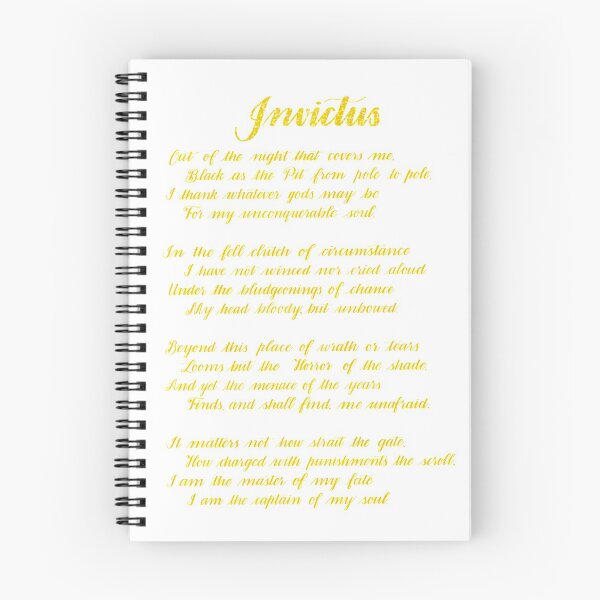 Invictus
Out of the night that covers me,
Black as the Pit from pole to pole,
I thank whatever gods may be
For my unconquerable soul.
In the fell clutch of circumstance
I have not winced nor cried aloud
Under the bludgeonings of chance
My head bloody, but unbowed
Beyond this place of wrath or tears
Looms but the Horror of the shade,
And yet the menace of the years
Finds, and shall find, me unafraid.
It matters not how strait the gate,
How charged with punishments the scroll,
I am the master of my fate
I am the captain of my soul